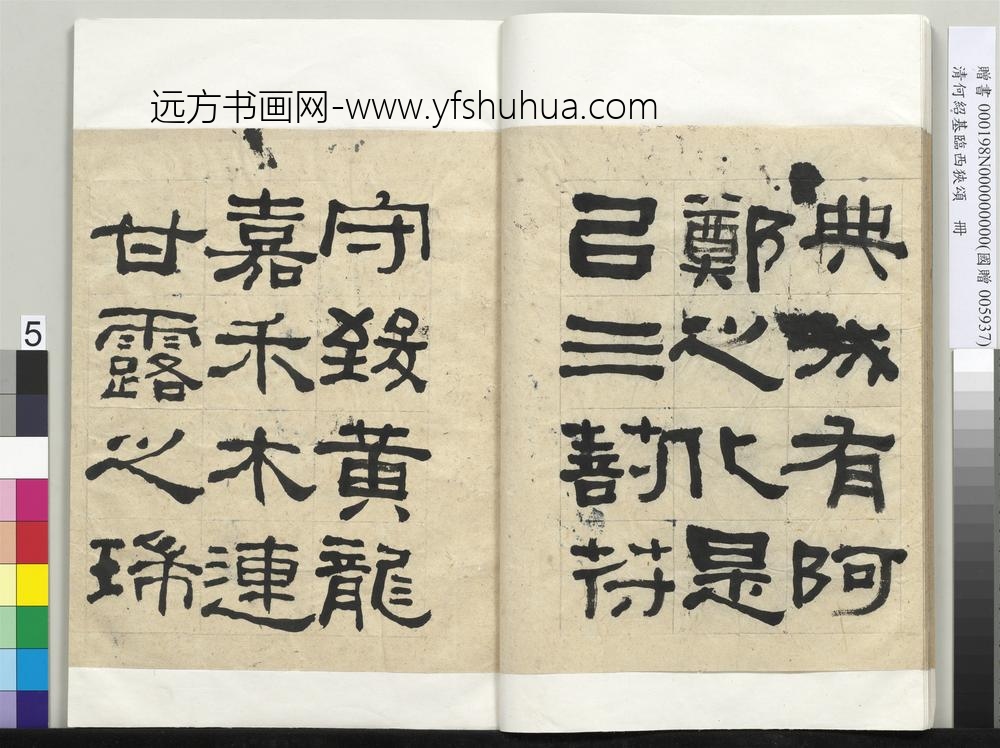 远方书画网-www.yfshuhua.com
典城有阿
鄭之化是
㠯三剖符
守致黃龍
嘉禾木連
甘露之瑞
贈書 000198N000000000(國贈 005937)
清何紹基臨西狹頌 冊
5